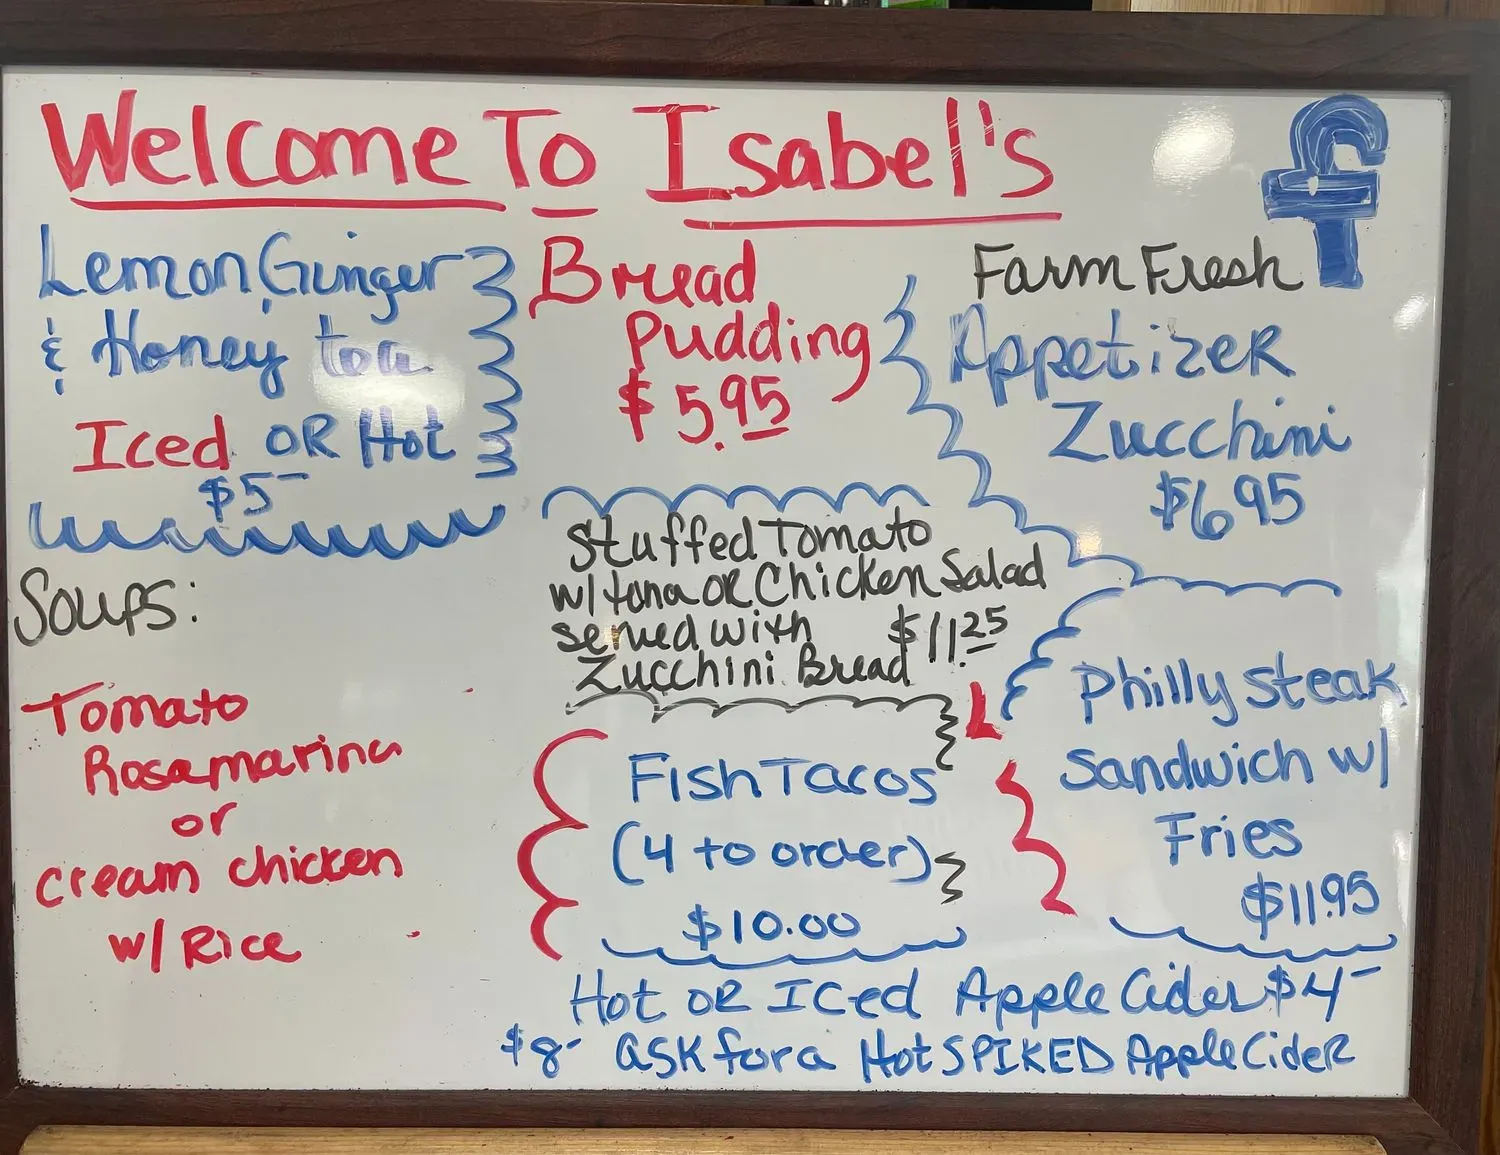 Welcome To Isabel's
f
Lemon, Ginger
& Honey tea
Iced OR Hot
$5-
Bread
Pudding
$5.95
Farm Fresh
Appetizer
Zucchini
$6.95
Soups:
Tomato
Rosamarina
or
cream chicken
w/ Rice
Stuffed Tomato
w/ tuna OR Chicken Salad
served with $11.25
Zucchini Bread
Fish Tacos
(4 to order)
$10.00
Philly steak
Sandwich w/
Fries
$11.95
Hot OR Iced Apple Cider $4-
$8- ASK for a Hot SPIKED Apple Cider